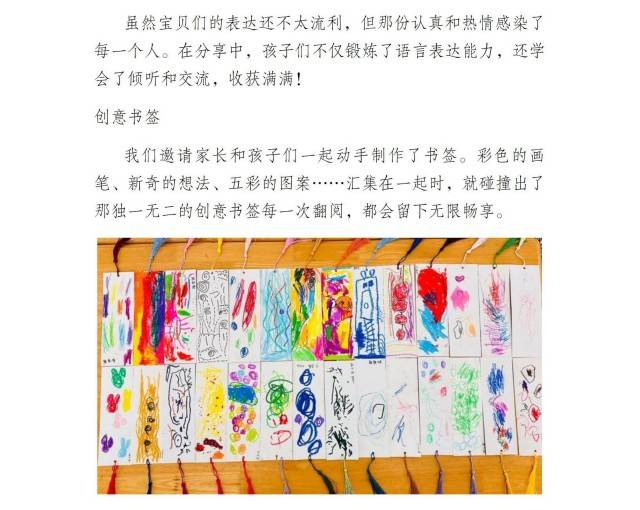 虽然宝贝们的表达还不太流利，但那份认真和热情感染了
每一个人。在分享中，孩子们不仅锻炼了语言表达能力，还学
会了倾听和交流，收获满满！
创意书签
我们邀请家长和孩子们一起动手制作了书签。彩色的画
笔、新奇的想法、五彩的图案……汇集在一起时，就碰撞出了
那独一无二的创意书签每一次翻阅，都会留下无限畅享。